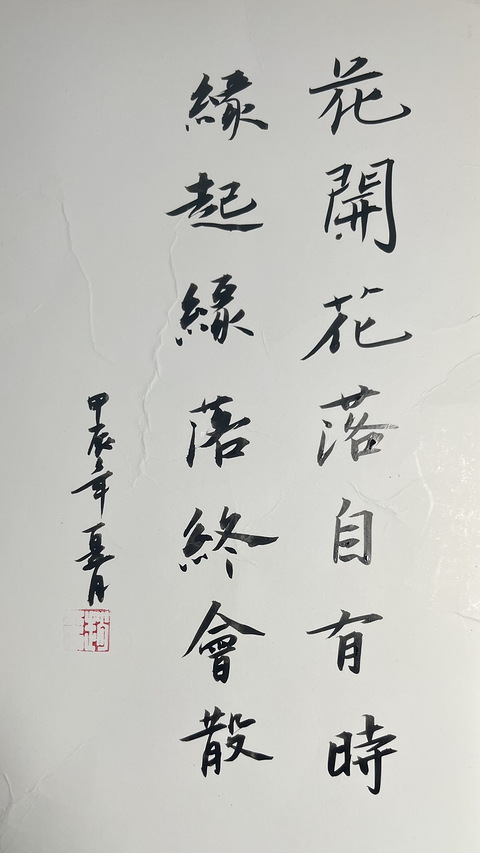 花開花落自有時
緣起緣落終會散
甲辰年夏月